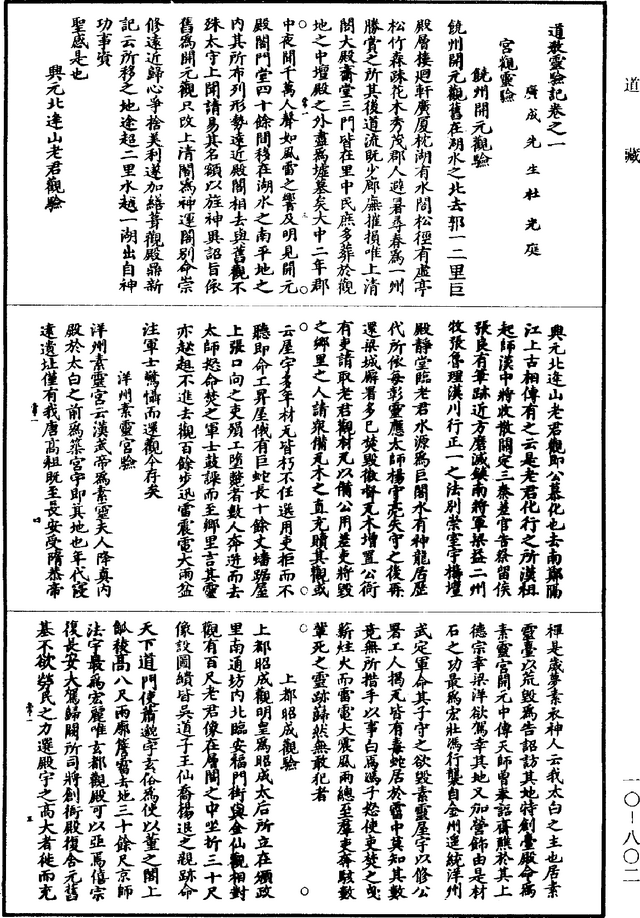 道教靈驗記卷之一
廣成先生杜光庭
宮觀靈驗
饒州開元觀驗
饒州開元觀舊在湖水之北去郭一二里巨
殿層樓迴軒廣厦枕湖有水閣松徑有虛亭
松竹森踈花木秀茂郡人避暑尋春為一州
勝賞之所其後道流既少廊廡摧損唯上清
閣大殿齋堂三門皆在里中民庶多葬於觀
地之中壇殿之外盡為墟墓矣大中二年郡
中夜聞千萬人聲如風雷之響及明見開元
殿閣門堂四十餘間移在湖水之南平地之
內其所布列形勢遠近殿閣相去與舊觀不
殊太守上聞請易其名額以旌神異詔旨依
舊為開元觀只改上清閣為神運閣別命崇
修遠近歸心爭捨美利遂加繕葺觀殿鼎新
記云所移之地途超二里水越一湖出自神
功事資
聖感是也
興元北逵山老君觀驗
興元北逵山老君觀即公慕化也去南鄭隔
江上古相傳有之云是老君化行之所漢祖
起師漢中將收散關定三秦差官告祭留侯
張良有筆跡近方磨滅鎮南將軍梁益二州
牧張魯理漢川行正一之法別崇室宇構壇
殿靜堂臨老君水源為巨閣水有神龍居歷
代所依每彰靈應太師楊守亮失守之後再
還梁城廨署多已焚毀徵督瓦木增置公衙
有吏請取老君觀材瓦以備公用差吏將毀
之鄉里之人請衆備瓦木之直充贖其觀或
云屋宇多年材瓦皆朽不任選用吏柜而不
聽即命工昇屋俄有巨蛇長十餘丈蟠踞屋
上張口向之吏殞工墮斃者數人奔迸而去
太師怒命焚之軍士鼓譟而至鄉里言其靈
亦趑趄不進去觀百餘步迅雷震電大雨盆
注軍士驚懾而還觀今存矣
洋州素靈宮驗
洋州素靈宮云漢武帝為素靈夫人降真內
殿於太白之前為築宮宇即其地也年代寖
遠遺址僅有我唐高祖既至長安受隋恭帝
禪是歲夢素衣神人云我太白之主也居素
靈臺以荒毀為告詔訪其地特創臺殿命為
素靈宮開元中傅天師曾奉詔齋醮於其上
德宗幸梁洋欲駕幸其地又加營飾由是材
石之功最為宏壯馮行襲自金州進統洋州
武定軍命其子守之欲毀素靈屋宇以修公
署工人揭瓦皆有毒蛇居於霤中莫知其數
竟無所措手以事白馮馮子怒使吏焚之曳
薪炷火而雷電大震風雨總至羣吏奔駭數
輩死之靈跡巋然無敢犯者
上都昭成觀驗
上都昭成觀明皇為昭成太后所立在頒政
里南通坊內北臨安福門街與金仙觀相對
觀有百尺老君像在層閣之中坐折三十尺
像設圖繢皆吳道子王仙喬楊退之親跡命
天下道門使蕭邈字玄俗為使以董之閣上
觚稜高八尺兩廊簷霤去地三十餘尺京師
法宇最為宏麗唯玄都觀殿可以亞焉僖宗
復長安大駕歸闕所司將創衙殿復含元舊
基不欲勞民之力選殿宇之高大者徙而充
道藏
一〇—八〇二